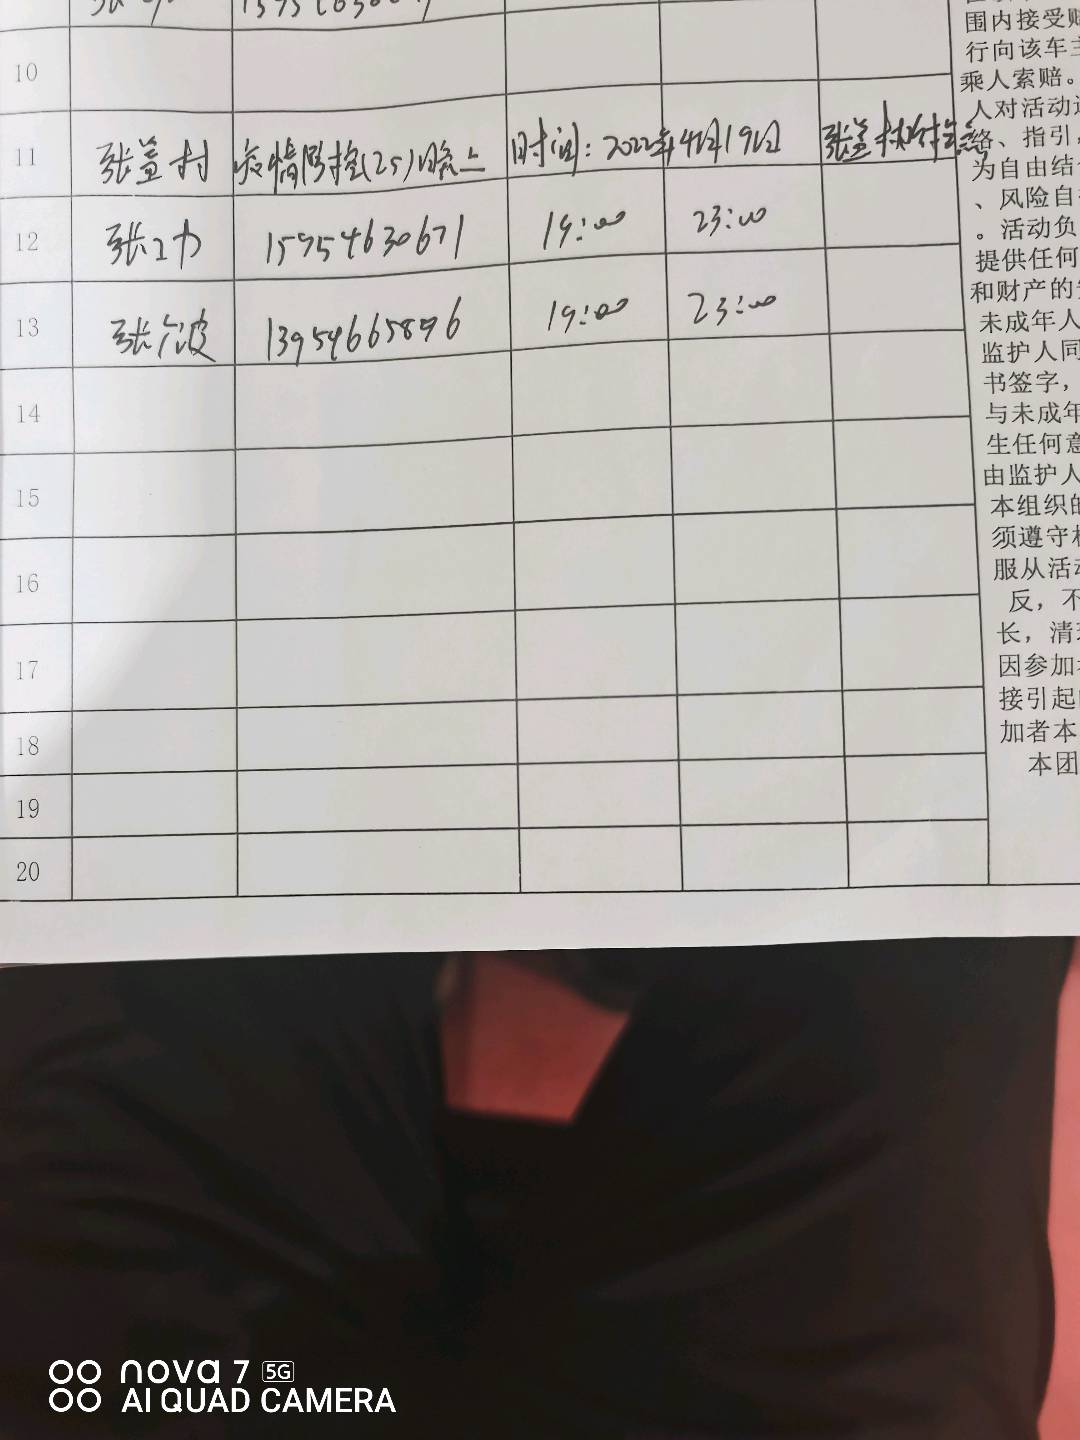 10
11 张盖村 疫情防控(25)晚上 时间: 2022年4月19日
12 张工力 15954630671 19:00 23:00
13 13954665896 19:00 23:00
14
15
16
17
18
19
20
围内接受
行向该车主
乘人索赔。
人对活动
、指引,
为自由结
、风险自
。活动负
提供任何
和财产的
未成年人
监护人同
书签字,
与未成年
生任何意
由监护人
本组织的
须遵守
服从活动
反,不
长,清
因参加
接引起
加者本
本团
nova 7 5G
AI QUAD CAMERA